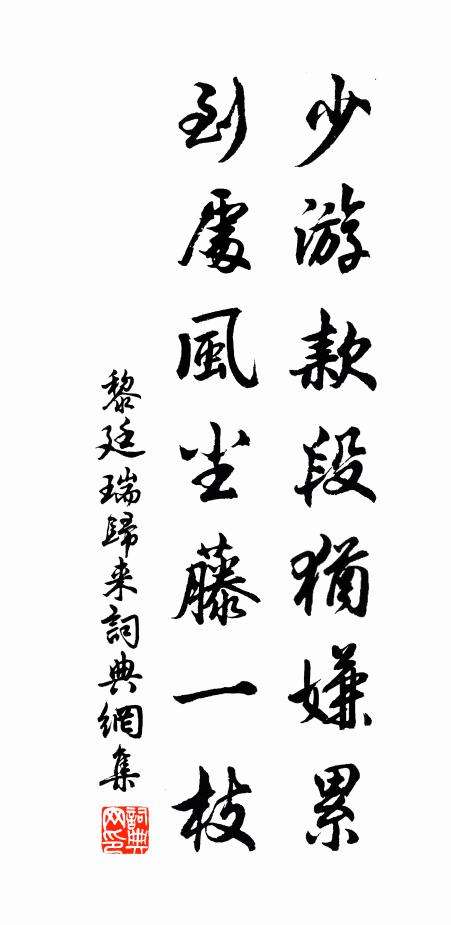 少游款段猶嫌累
到處風尘藤一枝
黎廷瑞歸来詞典網集
詞典网印